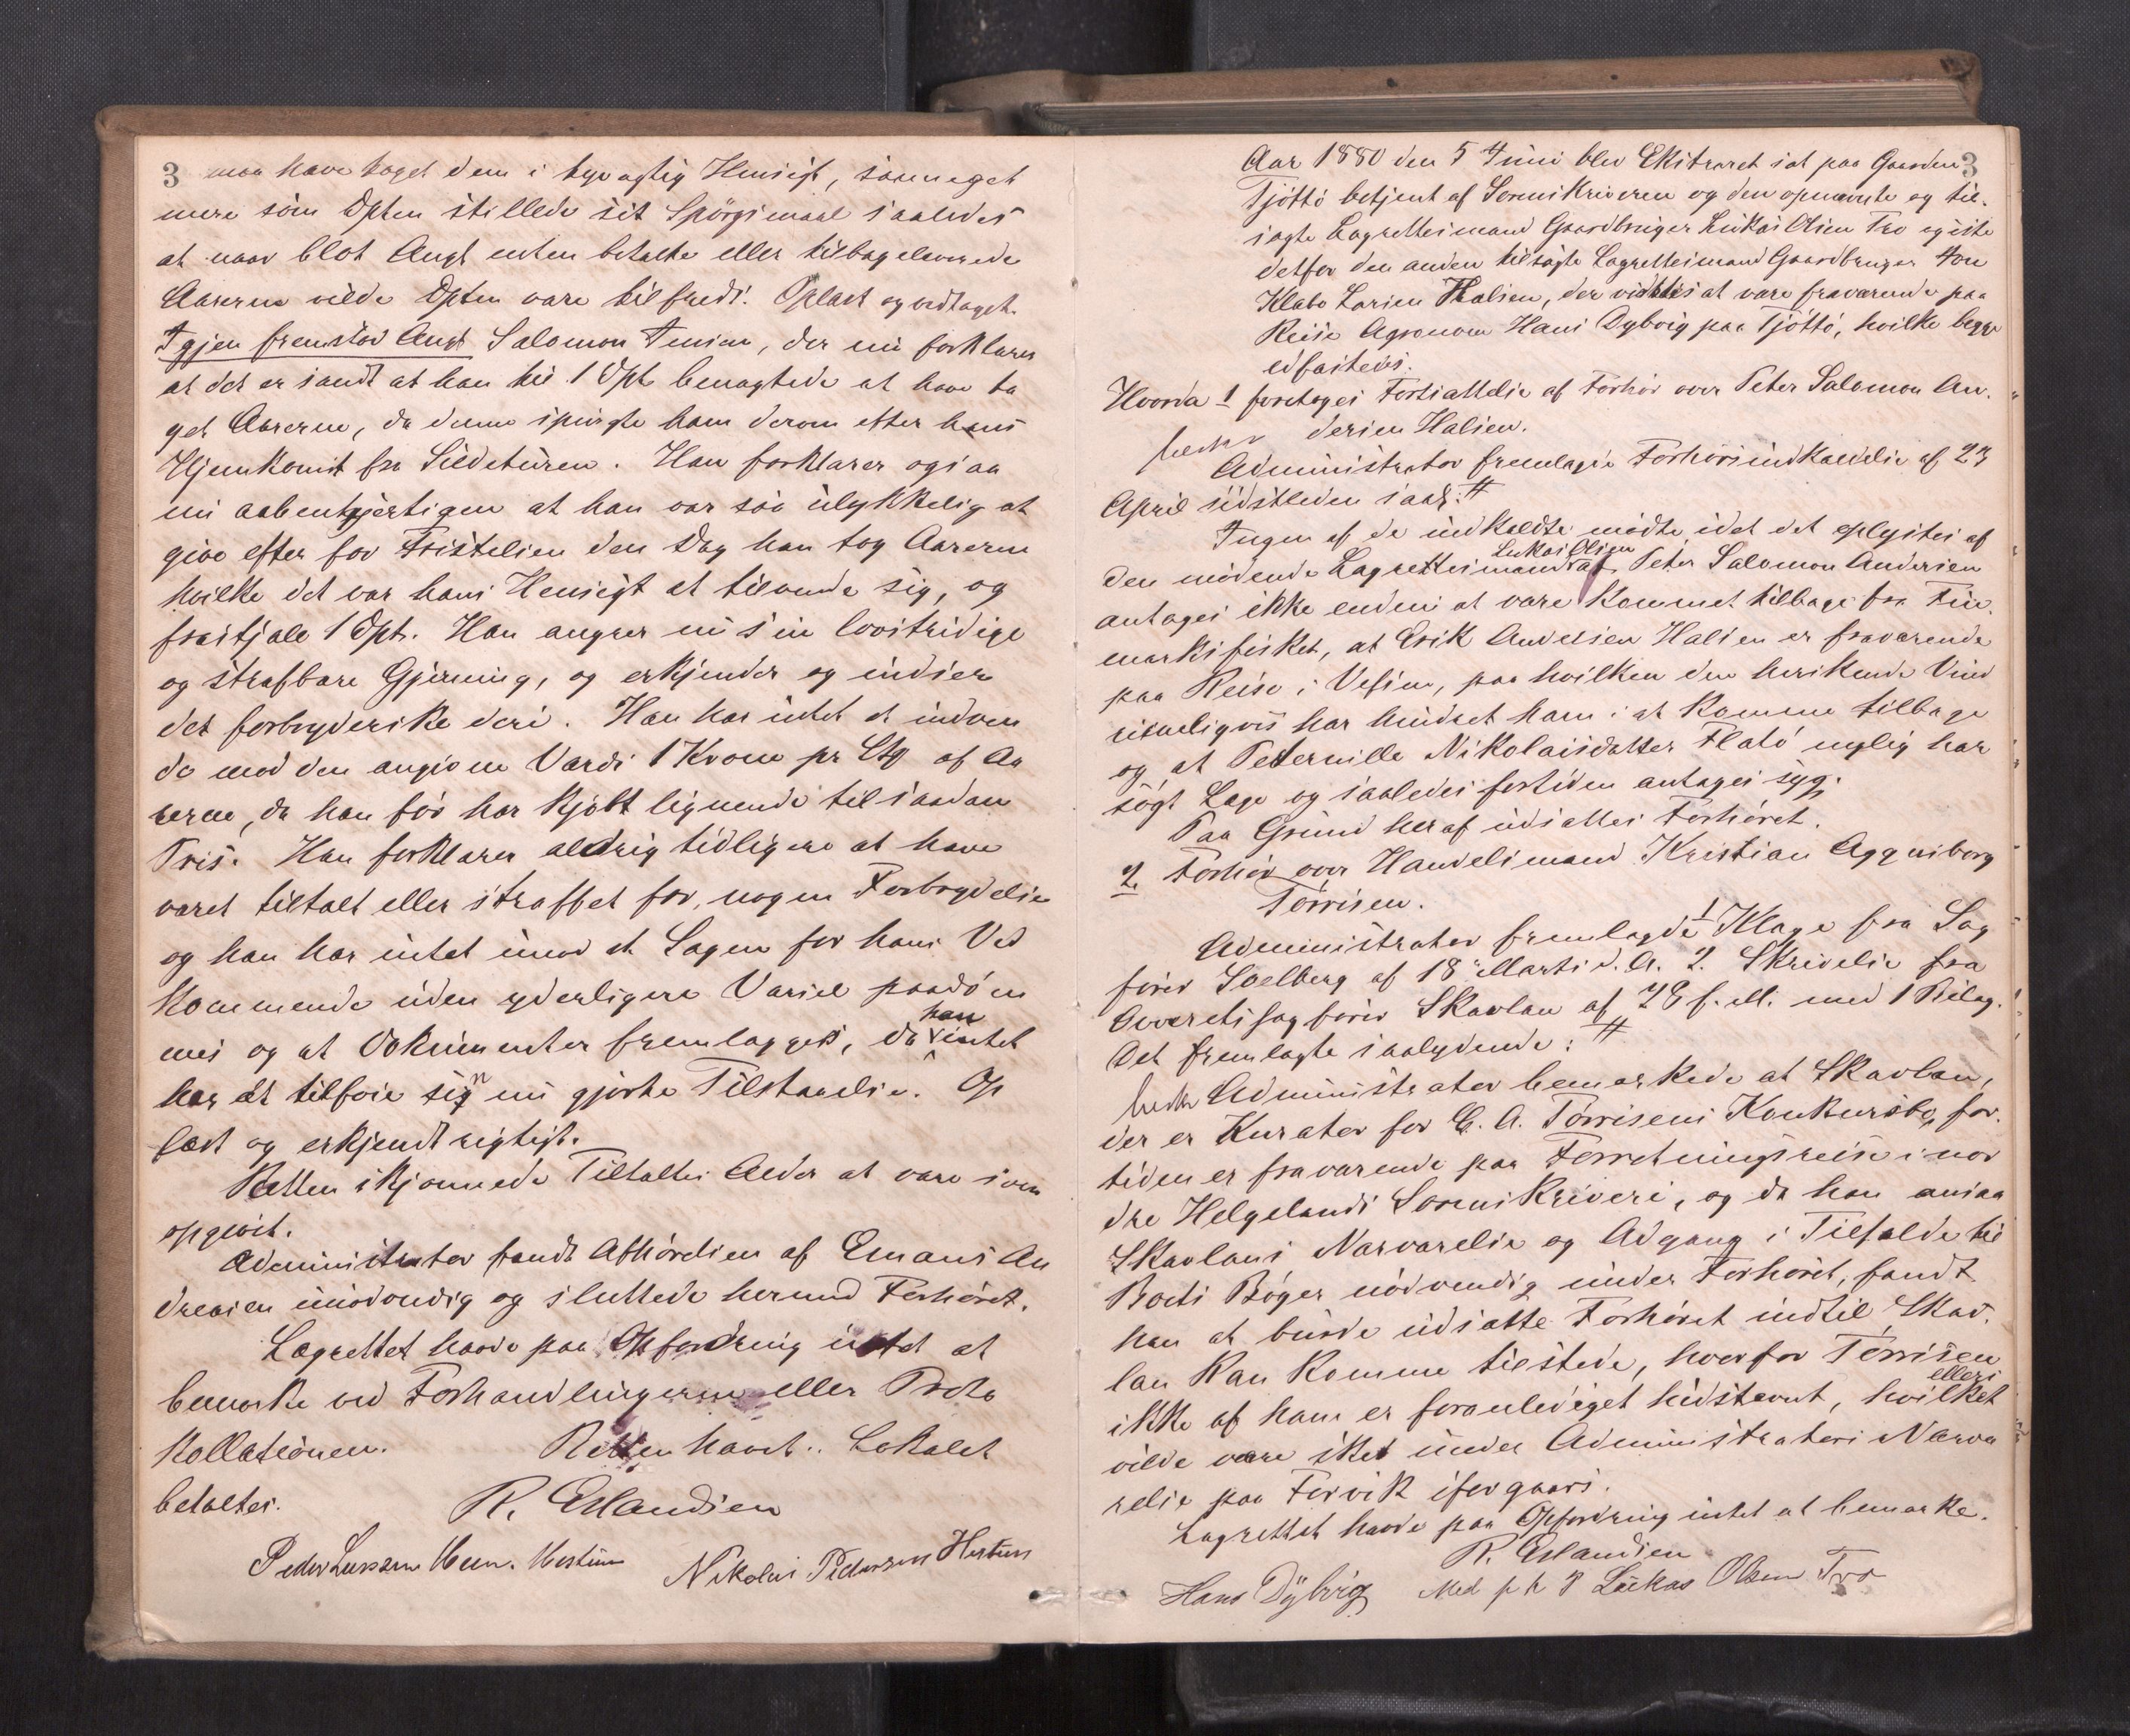 3 maa have taget dem i tyvagtig Hensigt, saameget
mere som Dpten stillede sit Spörgsmaal saaledes
at naar blot Angt enten betalte eller tilbageleverede
Aarerne vilde Dpten være tilfreds. Oplæst og vedtaget.
Igjen fremstod Angt Salomon Jensen, der nu forklarer
at det er sandt at han til 1 Dpt benægtede at have ta
get Aarerne, da denne spurgte ham derom efter hans
Hjemkomst fra Sildeturen. Han forklarer ogsaa
nu aabenhjertigen at han var saa ulykkelig at
give efter for Fristelsen den Dag han tog Aarerne
hvilke det var hans Hensigt at tilvende sig, og
frastjæle 1 Dpt. Han angrer nu sin lovstridige
og strafbare Gjerning, og erkjender og indser
det forbryderske deri. Han har intet at indven
de mod den angivne Værdi 1 Krone pr Stk af Aa
rerne, da han för har kjöbt lignende til saadan
Pris. Han forklarer aldrig tidligere at have
været tiltalt eller straffet for nogen Forbrydelse
og han har intet imod at Sagen for hans Ved
kommende uden yderligere Varsel paadöm
mes og at Dokumenter fremlægges, da han intet
har at tilföie sin nu gjorte Tilstaaelse. Op
læst og erkjendt rigtigt.
Retten skjönnede Tiltaltes Alder at være som
opgivet.
Administrator fandt Afhörelsen af Emans An
dreasen unödvendig og sluttede hermed Forhöret.
Lagrettet havde paa Opfordring intet at
bemærke ved Forhandlingerne eller Proto
kollationen. Retten hævet. Lokalet
betaltes. R. Erlandsen
Peder Larssen Hestun Nikolai Pedersen Hestun
Aar 1880 den 5 Juni blev Ekstraret sat paa Gaarden 3
Tjöttö betjent af Sorenskriveren og den opnævnte og til-
sagte Lagrettesmand Gaardbruger Lukas Olsen Tro og iste
detfor den anden tilsagte Lagrettesmand Gaardbruger Jon
Klabo Larsen Thalsen, der vistes at være fraværende paa
Reise Agronom Hans Dybvig paa Tjöttö, hvilke begge
edfæstedes.
Hvorda 1 foretoges Fortsættelse af Forhör over Peter Salomon An-
dersen Halsen.
Administrator fremlagde Forhörsindkaldelse af 23
April sidstleden saal: #
Ingen af de indkaldte mödte, idet det oplystes af
den mödende Lagrettesmand Lukas Olsen at Peter Salomon Andersen
antages ikke endnu at være kommet tilbage fra Fin-
marksfisket, at Erik Andersen Halsen er fraværende
paa Reise i Vefsen, paa hvilken den herskende Vind
rimeligvis har hindret ham i at komme tilbage
og at Peternille Nikolaisdatter Flatö nylig har
sögt Læge og saaledes fortiden antages syg.
Paa Grund heraf udsattes Forhöret.
2. Forhör over Handelsmand Kristian Aggersborg
Törrisen.
Administrator fremlagde 1 Klage fra Sag
förer Soelberg af 18 Marts d. A. 2. Skrivelse fra
Overetssagförer Skavlan af 28 f. M. med 1 Bilag.
Det fremlagte saalydende: #
Administrator bemærkede at Skavlan,
der er Kurator for C. A. Törrisens Konkursbo, for
tiden er fraværende paa Forretningsreise i nor
dre Helgelands Sorenskriveri, og da han ansaa
Skavlans Nærværelse og Adgang i Tilfælde til
Boets Böger nödvendig under Forhöret, fandt
han at burde udsætte Forhöret indtil Skav-
lan kan komme tilstede, hvorfor Törrisen
ikke af ham er foranlediget hidstevnt, hvilket ellers
vilde være sket under Administrators Nærvæ
relse paa Forvik iforgaars.
Lagrettet havde paa Opfordring intet at bemærke.
R. Erlandsen
Hans Dÿbvig Med p h P Lukas Olsen Tro